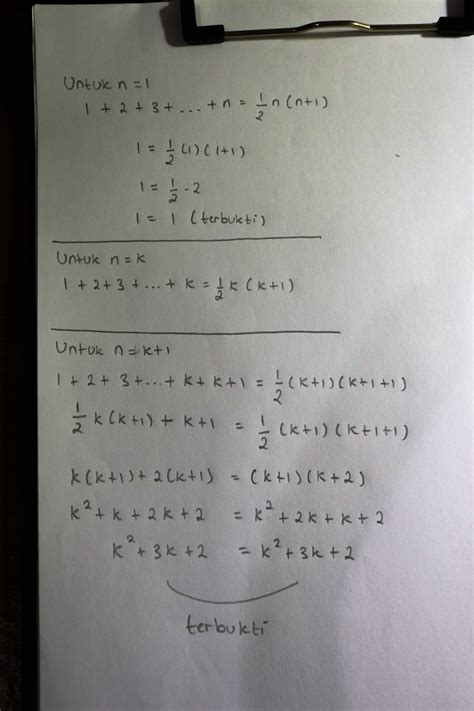 Untuk n = 1
1 + 2 + 3 + ... + n = 1/2 n (n+1)
1 = 1/2 (1) (1+1)
1 = 1/2 . 2
1 = 1 (terbukti)
Untuk n = k
1 + 2 + 3 + ... + k = 1/2 k (k+1)
Untuk n = k+1
1 + 2 + 3 + ... + k + k+1 = 1/2 (k+1) (k+1+1)
1/2 k (k+1) + k+1 = 1/2 (k+1) (k+1+1)
k (k+1) + 2 (k+1) = (k+1) (k+2)
k² + k + 2k + 2 = k² + 2k + k + 2
k² + 3k + 2 = k² + 3k + 2
terbukti